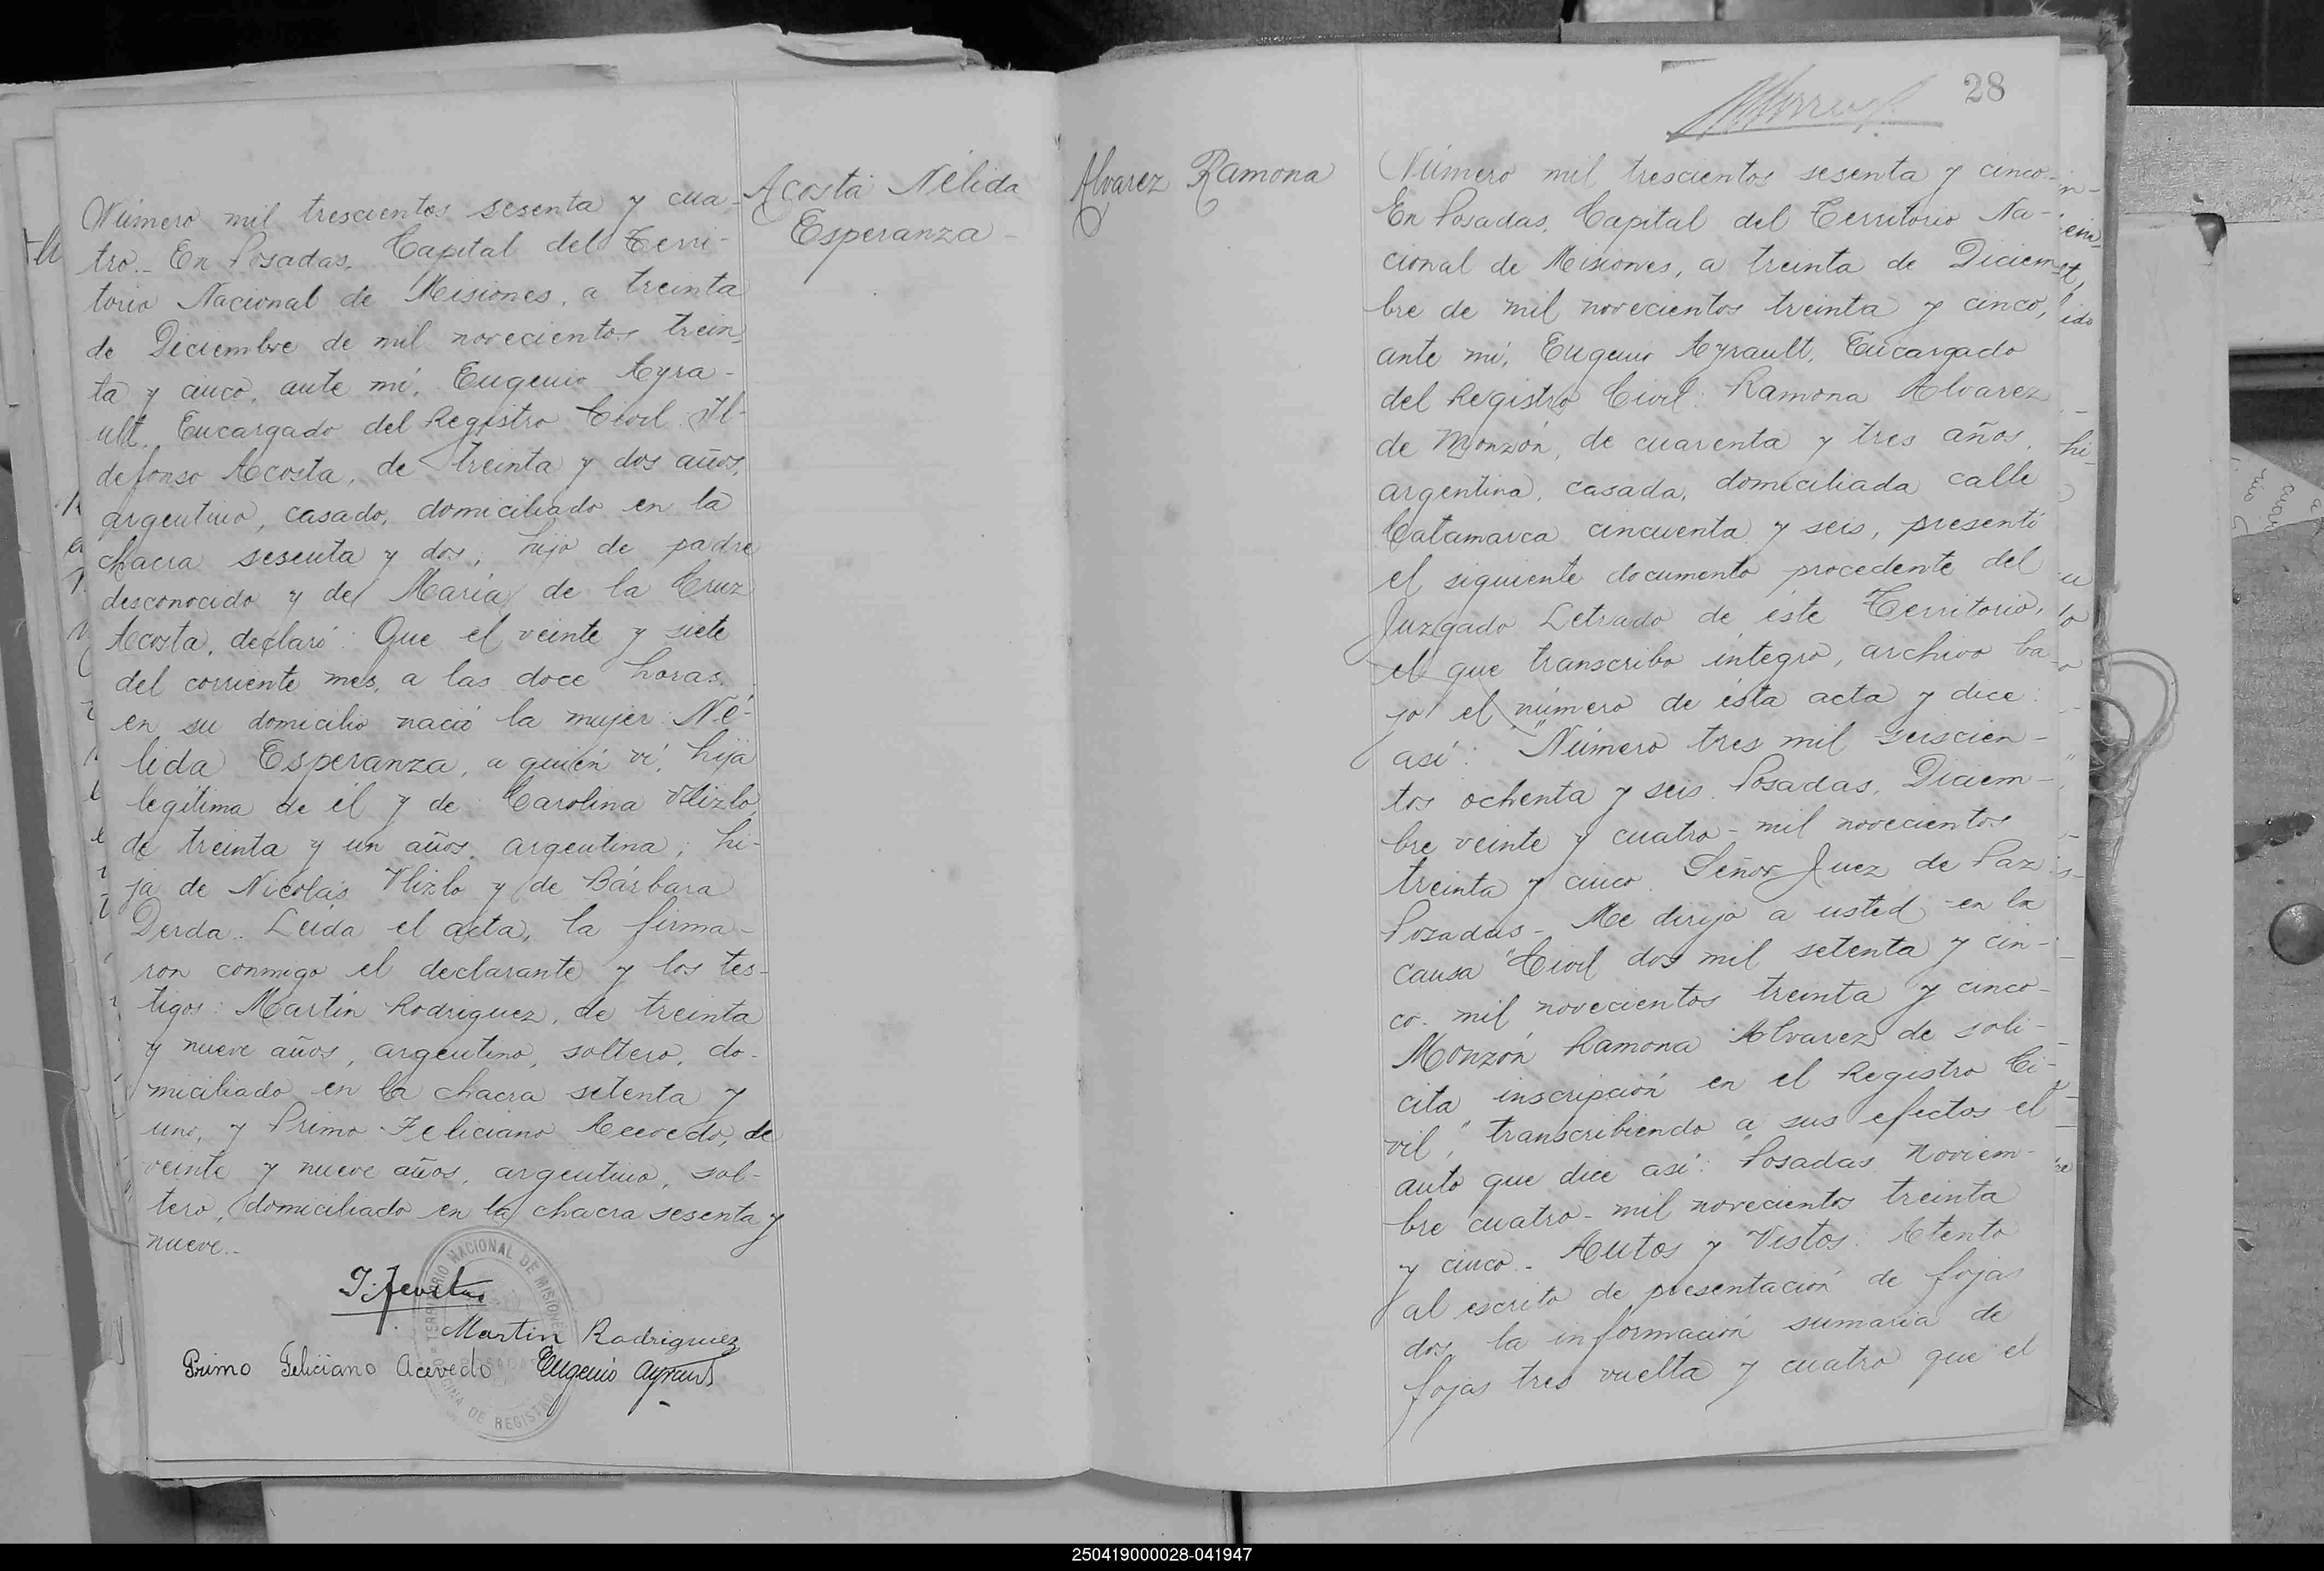 Acosta Nélida
Esperanza-
Número mil trescientos sesenta y cua-
tro.- En Posadas, Capital del Terri-
torio Nacional de Misiones, a treinta
de Diciembre de mil novecientos trein-
ta y cinco, ante mí, Eugenio Ayra-
ult, Encargado del Registro Civil: Il-
defonso Acosta, de treinta y dos años,
argentino, casado, domiciliado en la
chacra sesenta y dos, hijo de padre
desconocido y de María de la Cruz
Acosta, declaró: Que el veinte y siete
del corriente mes, a las doce horas,
en su domicilio nació la mujer: Né-
lida Esperanza, a quién ví, hija
legítima de él y de Carolina
de treinta y un años, argentina; hi-
ja de Nicolás y de Bárbara
Derda.- Leída el acta, la firma-
ron conmigo el declarante y los tes-
tigos: Martín Rodriguez, de treinta
y nueve años, argentino, soltero, do-
miciliado en la chacra setenta y
uno, y Primo Feliciano Acevedo, de
veinte y nueve años, argentino, sol-
tero, domiciliado en la chacra sesenta y
nueve.-
Martin Rodriguez
Primo Feliciano Acevedo Eugenio Ayrault
TERRITORIO NACIONAL DE MISIONES
POSADAS
OFICINA DE REGISTRO
28
Alvarez Ramona
Número mil trescientos sesenta y cinco-
En Posadas, Capital del Territorio Na-
cional de Misiones, a treinta de Diciem-
bre de mil novecientos treinta y cinco,
ante mí, Eugenio Ayrault, Encargado
del Registro Civil: Ramona Alvarez
de Monzón, de cuarenta y tres años,
argentina, casada, domiciliada calle
Catamarca cincuenta y seis, presentó
el siguiente documento procedente del
Juzgado Letrado de éste Territorio,
el que transcribo íntegro, archivo ba-
jo el número de ésta acta y dice
así: "Número tres mil seiscien-
tos ochenta y seis. Posadas, Diciem-
bre veinte y cuatro- mil novecientos
treinta y cinco. Señor Juez de Paz
Posadas- Me dirijo a usted en la
causa "Civil dos mil setenta y cin-
co- mil novecientos treinta y cinco-
Monzón Ramona Alvarez de soli-
cita inscripción en el Registro Ci-
vil," transcribiendo a sus efectos el
auto que dice así: "Posadas, Noviem-
bre cuatro- mil novecientos treinta
y cinco.- Autos y Vistos: Atento
al escrito de presentación de fojas
dos, la información sumaria de
fojas tres vuelta y cuatro que el
250419000028-041947